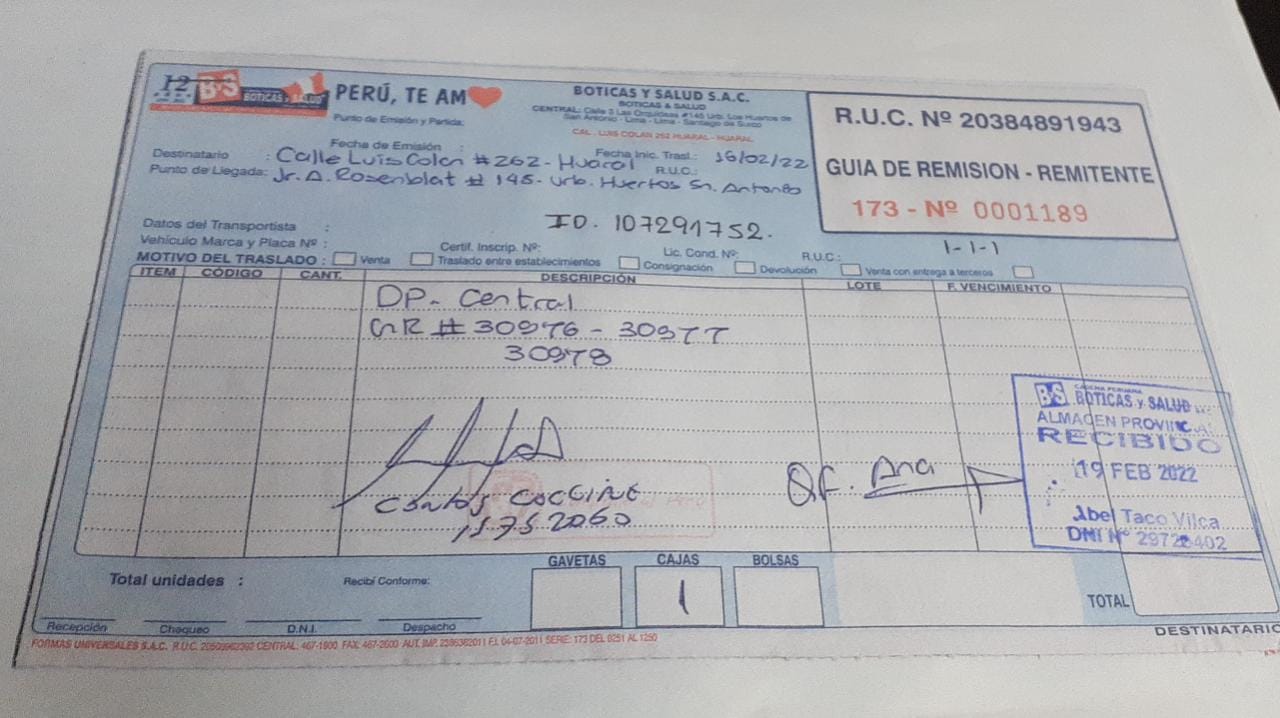 12
B&S
BOTICAS y SALUD
PERÚ, TE AM
BOTICAS Y SALUD S.A.C.
BOTICAS & SALUD
CENTRAL: Calle 3 Las Orquídeas #145 Urb. Los Huertos de
San Antonio - Lima - Lima - Santiago de Surco
CAL. LUIS COLAN 262 HUARAL - HUARAL
Punto de Emisión y Partida:
R.U.C. Nº 20384891943
GUIA DE REMISION - REMITENTE
173 - Nº 0001189
Fecha de Emisión :
Fecha Inic. Trasl.: 16/02/22
Destinatario : Calle Luis Colan # 262 - Huaral R.U.C.:
Punto de Llegada: Jr. A. Rosenblat # 145 - Urb. Huertos Sn. Antonio
Datos del Transportista :
ID. 107291752.
Vehículo Marca y Placa Nº :
Certif. Inscrip. Nº:
Lic. Cond. Nº:
R.U.C.:
1-1-1
MOTIVO DEL TRASLADO : Venta
Traslado entre establecimientos
Consignación
Devolución
Venta con entrega a terceros
ITEM CÓDIGO CANT. DESCRIPCIÓN LOTE F. VENCIMIENTO
DP- Central
GR # 30976 - 30977
30978
QF. Ana
B&S
CADENA PERUANA
BOTICAS y SALUD
ALMACEN PROVINCIAL
RECIBIDO
19 FEB 2022
Abel Taco Vilca
15752060
GAVETAS CAJAS BOLSAS
1
Total unidades :
Recibí Conforme:
TOTAL
Recepción Chequeo D.N.I. Despacho
DESTINATARIO
FORMAS UNIVERSALES S.A.C. R.U.C. CENTRAL: 467-1900 FAX: 467-2600 AUT. IMP. F.I. 04-07-2011 SERIE: 173 DEL 0251 AL 1250